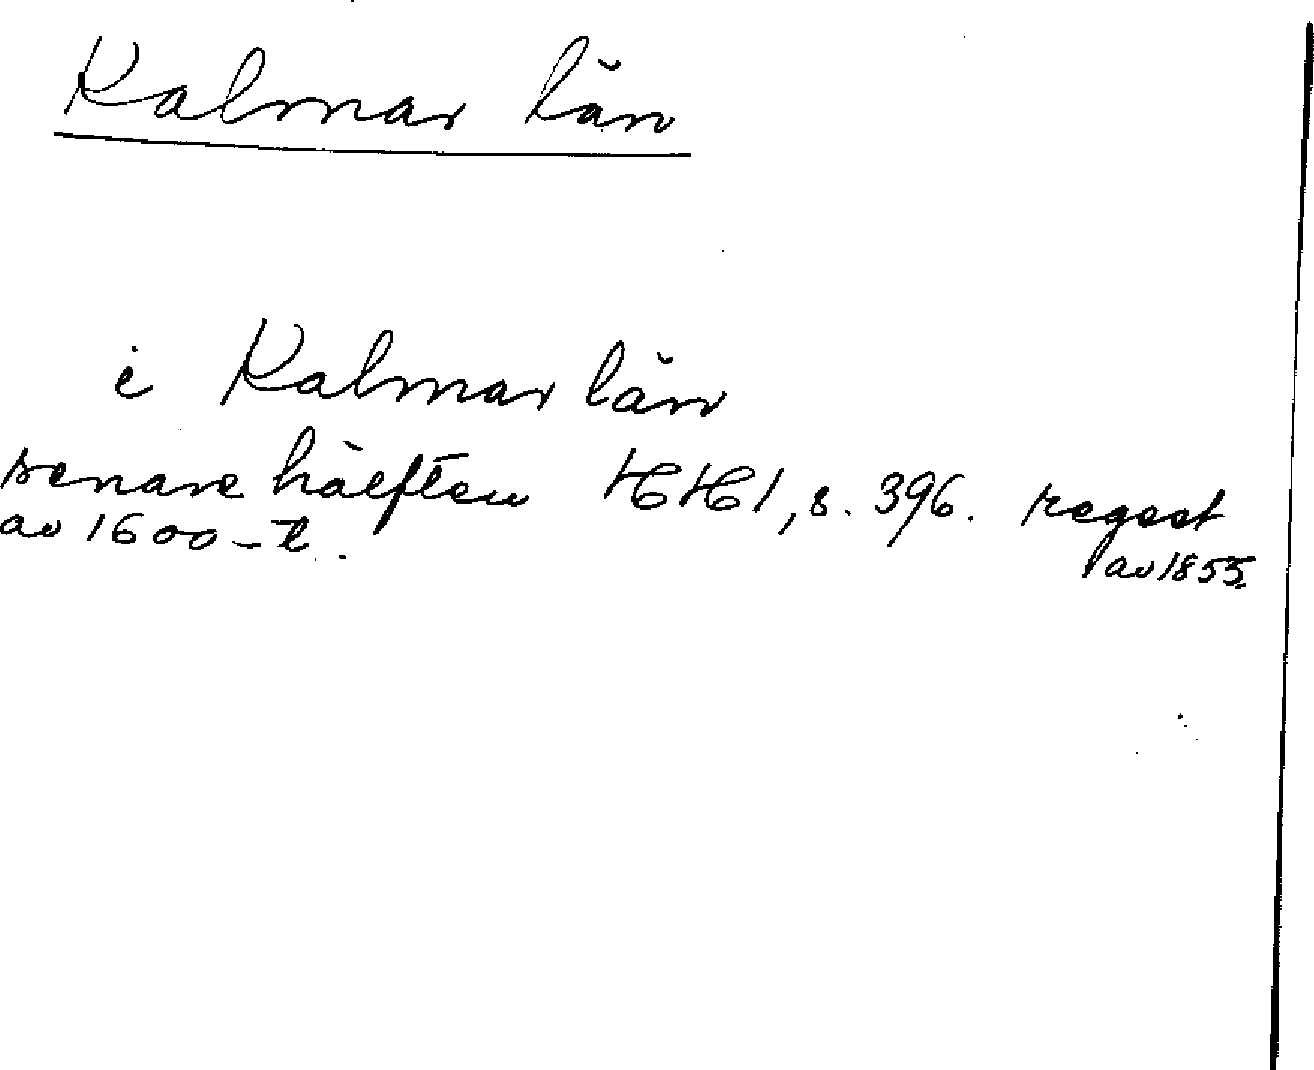 Kalmar län
i Kalmar län
senare hälften HH1, s. 396. regest
av 1600-t. av 1855